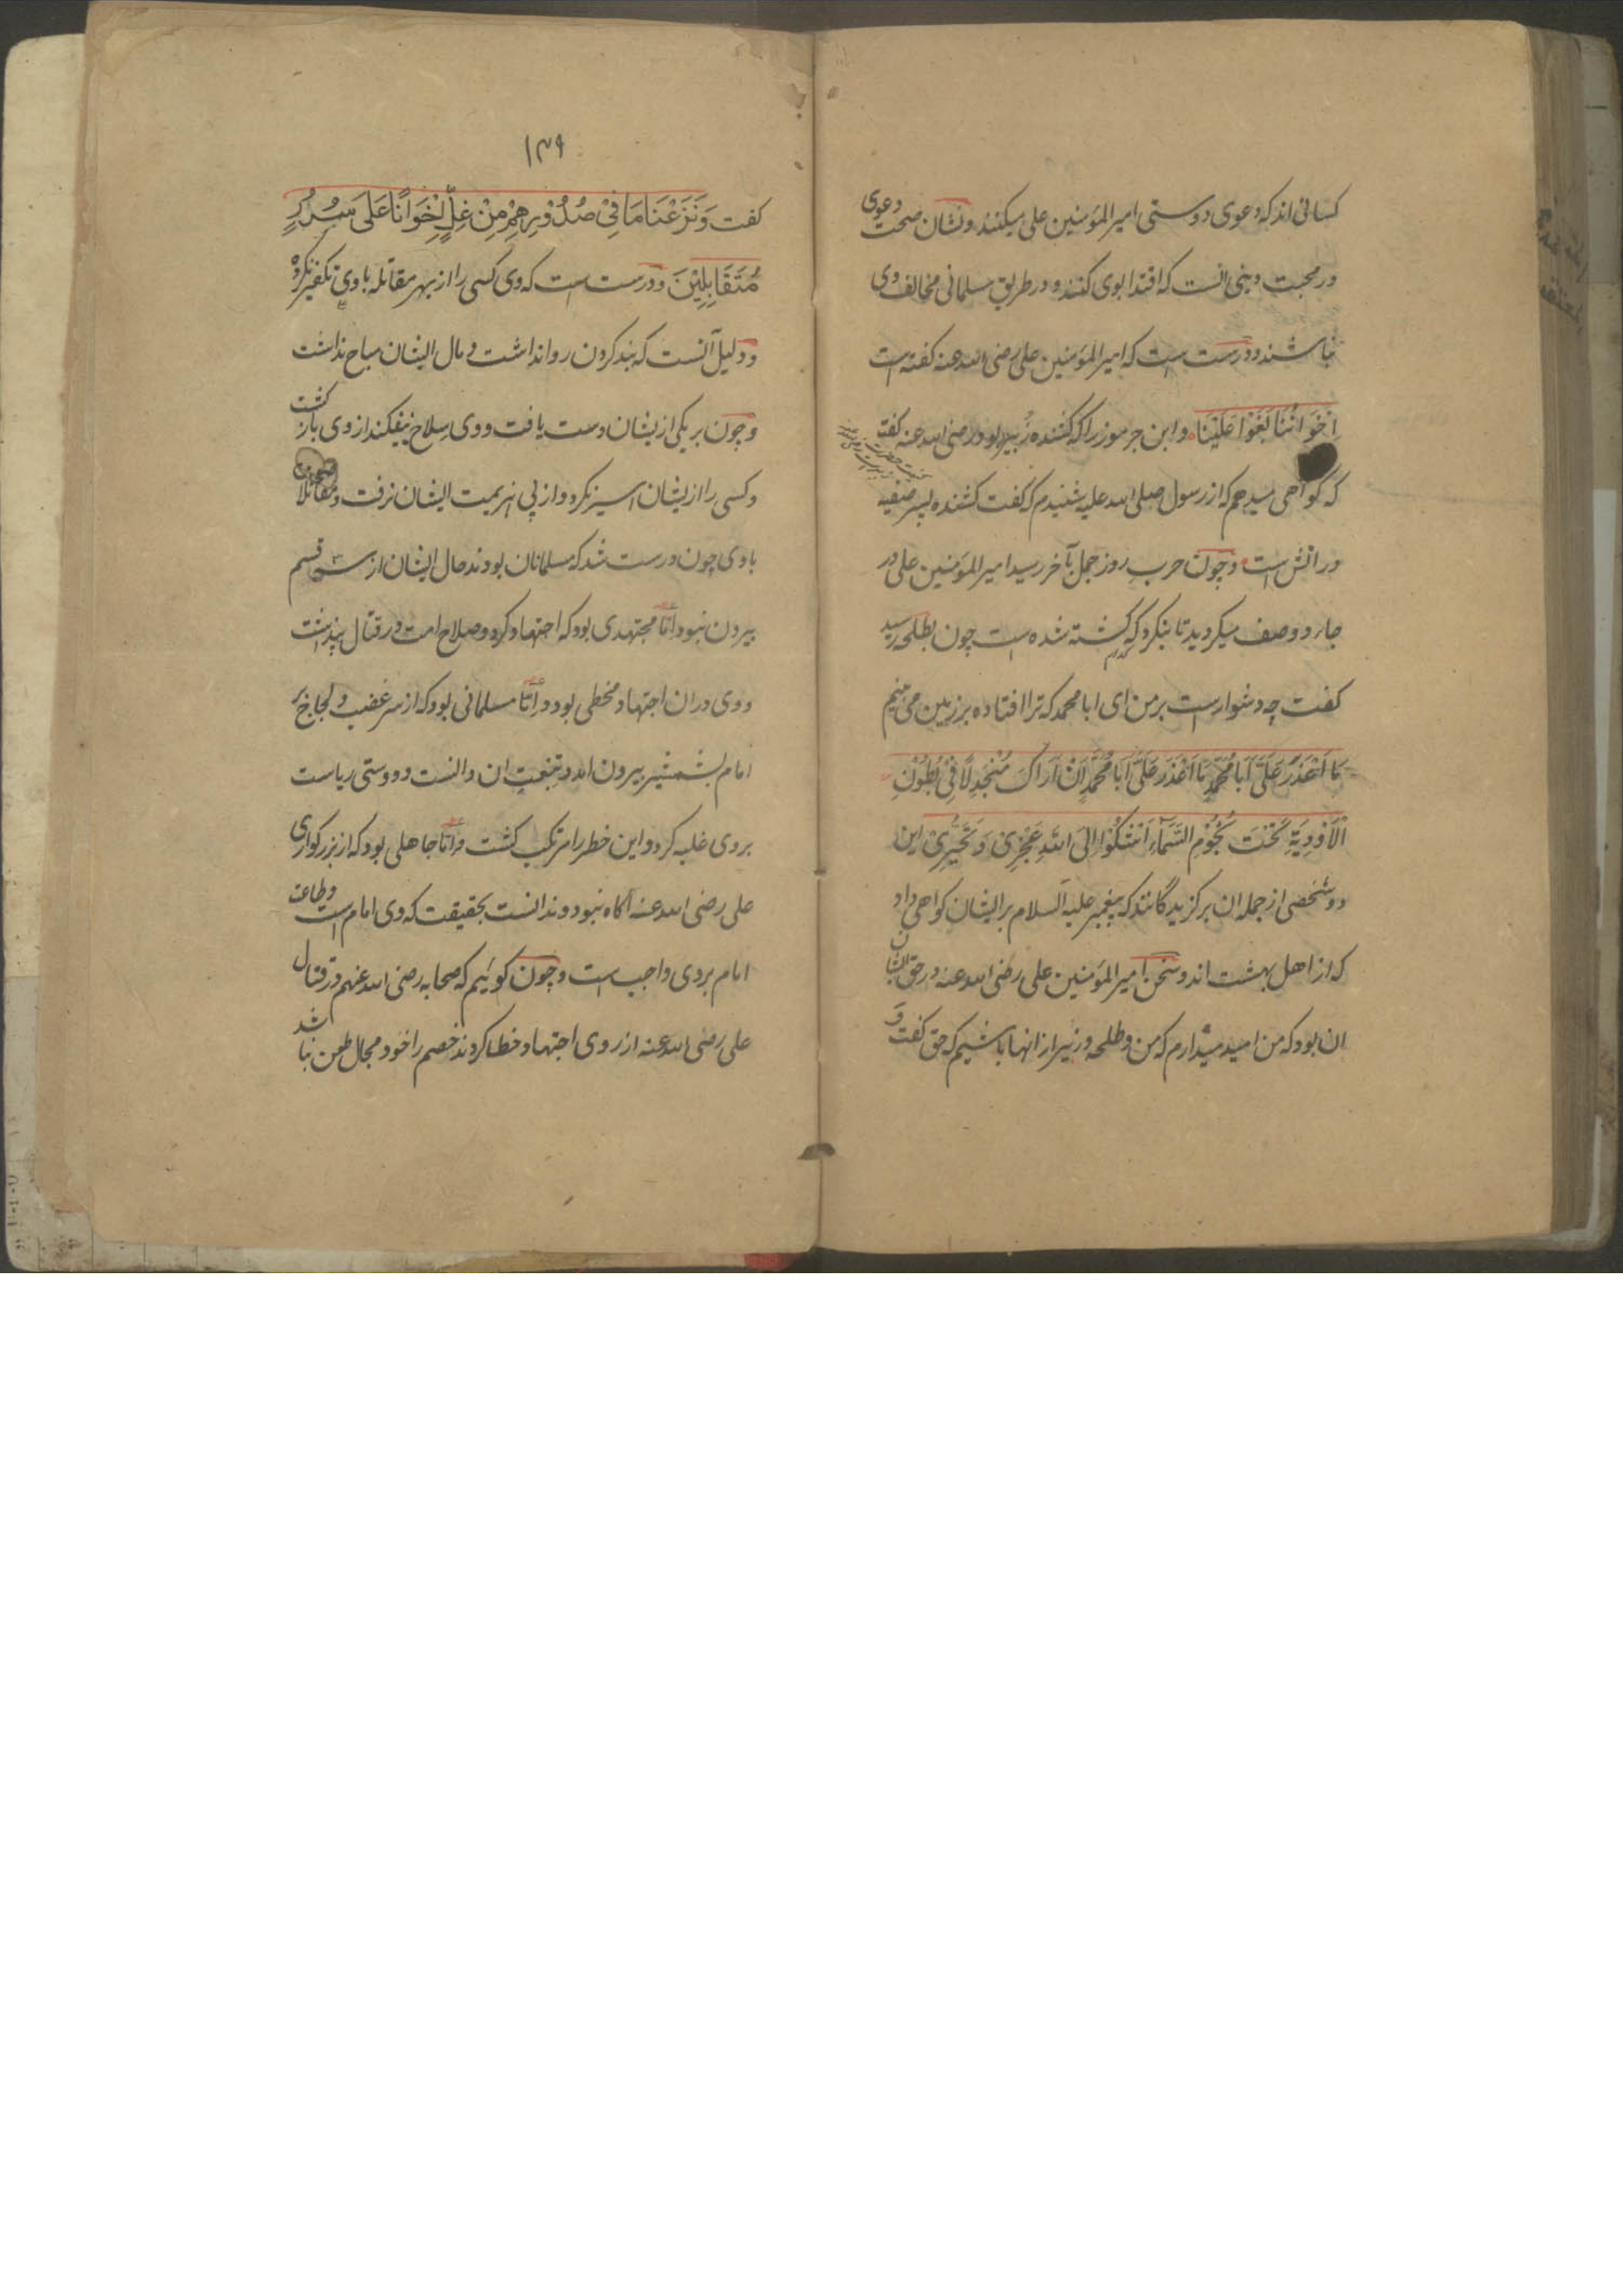 کسانی اند که دعوی دوستی امیر المؤمنین علی میکنند و نشان صحت دعوی
در محبت دینی آنست که اقتدا بوی کنند و در طریق مسلمانی مخالف وی
نباشند و درست است که امیر المؤمنین علی رضی الله عنه گفته است
اِخْوَانُنَا بَغَوْا عَلَیْنَا و ابن جرموز را که کشنده زبیر بود رضی الله عنه گفت
که گواهی میدهم که از رسول صلی الله علیه شنیدم که گفت کشنده پسر صفیه
در آتش است و چون حرب روز جمل بآخر رسید امیر المؤمنین علی در
هر دو صف میگردید تا بنگرد که کشته شده است چون بطلحه رسید
گفت چه دشوار است بر من ای ابا محمد که ترا افتاده بر زمین می بینم
مَا اَعْذَرَ عَلَیَّ اَبَا مُحَمَّدٍ مَا اَعْذَرَ عَلَیَّ اَبَا مُحَمَّدٍ اَنْ اَرَاکَ مُنْجَدِلًا فِیْ بُطُوْنِ
الْاَوْدِیَةِ تَحْتَ نُجُوْمِ السَّمَآءِ اَشْکُوْا اِلَی اللّٰهِ عَجْزِیْ وَ تَحَیُّرِیْ این
دو شخص از جمله ان برگزیدگانند که پیغمبر علیه السلام بر ایشان گواهی داد
که از اهل بهشت اند و سخن امیر المؤمنین علی رضی الله عنه در حق ایشان
ان بود که من امید میدارم که من و طلحه و زبیر از انها باشیم که حق گفت و
۱۳۹
گفت وَنَزَعْنَا مَا فِیْ صُدُوْرِهِمْ مِنْ غِلٍّ اِخْوَانًا عَلَی سُرُرٍ
مُتَقَابِلِیْنَ و درست است که وی کسی را از بهر مقاتله با وی تکفیر نکرد
و دلیل آنست که بند کردن روا نداشت و مال ایشان مباح نداشت
و چون بر یکی از یشان دست یافت و وی سلاح بیفکند از وی بازگشت
و کسی را از یشان اسیر نکرد و از پی هزیمت ایشان نرفت و مقاتلان
با وی چون درست شد که مسلمانان بودند حال ایشان از سه قسم
بیرون نبود امّا مجتهدی بود که اجتهاد کرد و صلاح امت در قتال پنداشت
و وی در ان اجتهاد مخطی بود و امّا مسلمانی بود که از سر غضب و لجاج بر
امام بشمشیر بیرون امد و تبعیت ان دانست و دوستی ریاست
بر وی غلبه کرد و این خطر را مرتکب گشت و امّا جاهلی بود که از بزرگواری
علی رضی الله عنه اگاه نبود و ندانست بحقیقت که وی امام است و طاعت
امام بر وی واجب است و چون گوئیم که صحابه رضی الله عنهم در قتال
علی رضی الله عنه از روی اجتهاد خطا کردند خصم را خود مجال طعن نباشد